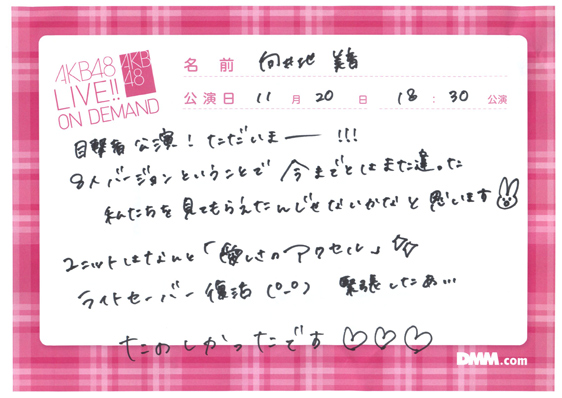 AKB48
LIVE!!
ON DEMAND
AKB
48
名前 向井地 美音
公演日 11月20日 18:30公演
目撃者公演！ただいまー！！！
8人バージョンということで 今までとはまた違った
私たちを見てもらえたんじゃないかなと思います
ユニットはなんと「愛しさのアクセル」
ライトセーバー復活(°_°) 緊張したぁ…
たのしかったです♡♡♡
DMM.com